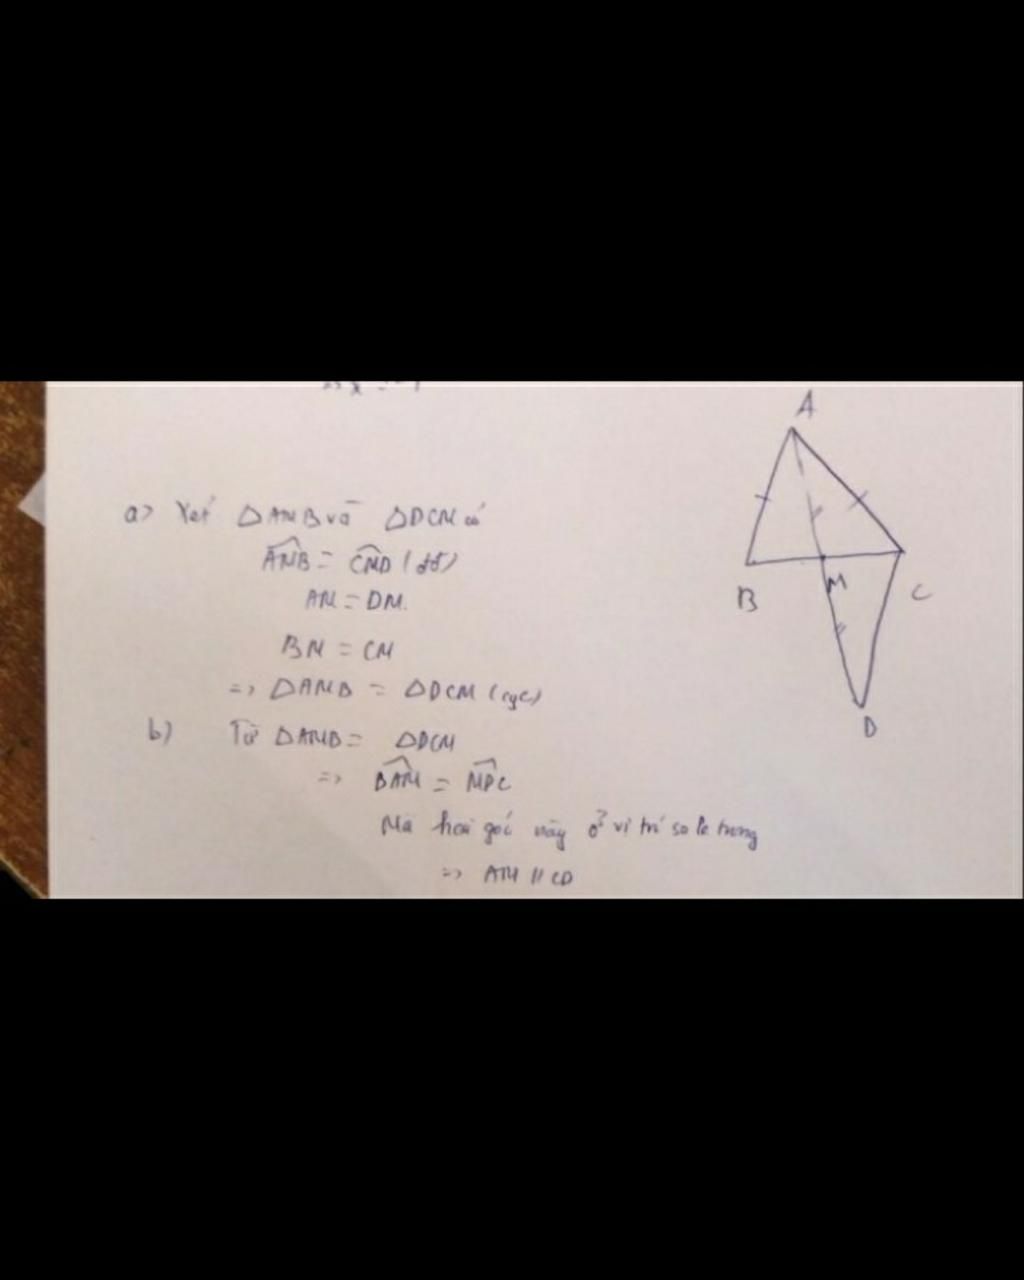 A
a) Xét △AMB và △DCM có
AMB = CMD (đđ)
AM = DM.
B M C
BM = CM
=> △AMB = △DCM (cgc)
D
b) Từ △AMB = △DCM
=> BAM = MDC
Mà hai góc này ở vị trí so le trong
=> AM // CD